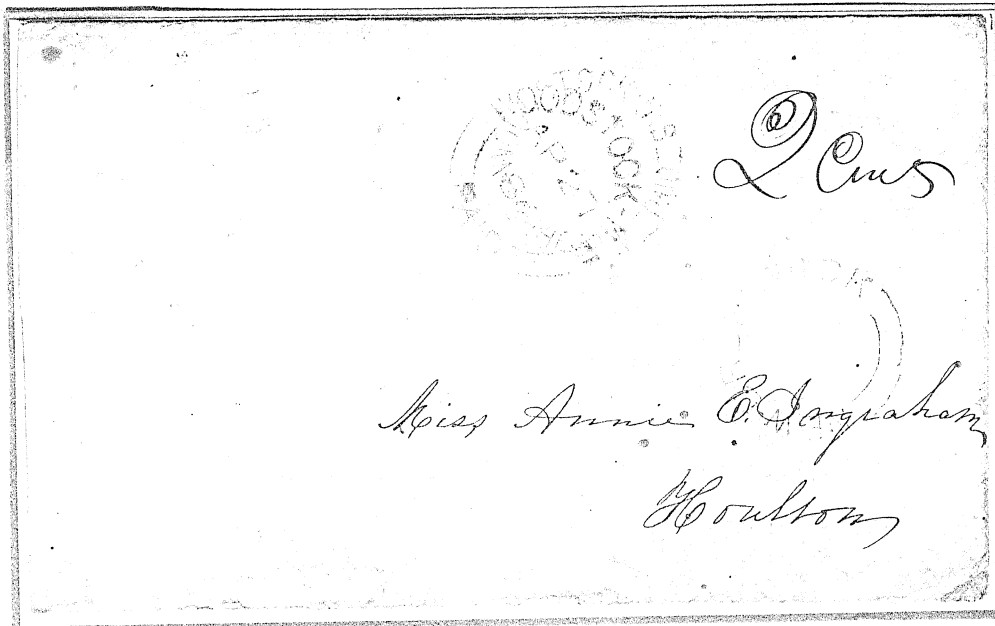 WOODSTOCK
AP
2 Cents
Miss Annie E. Ingraham
Houlton